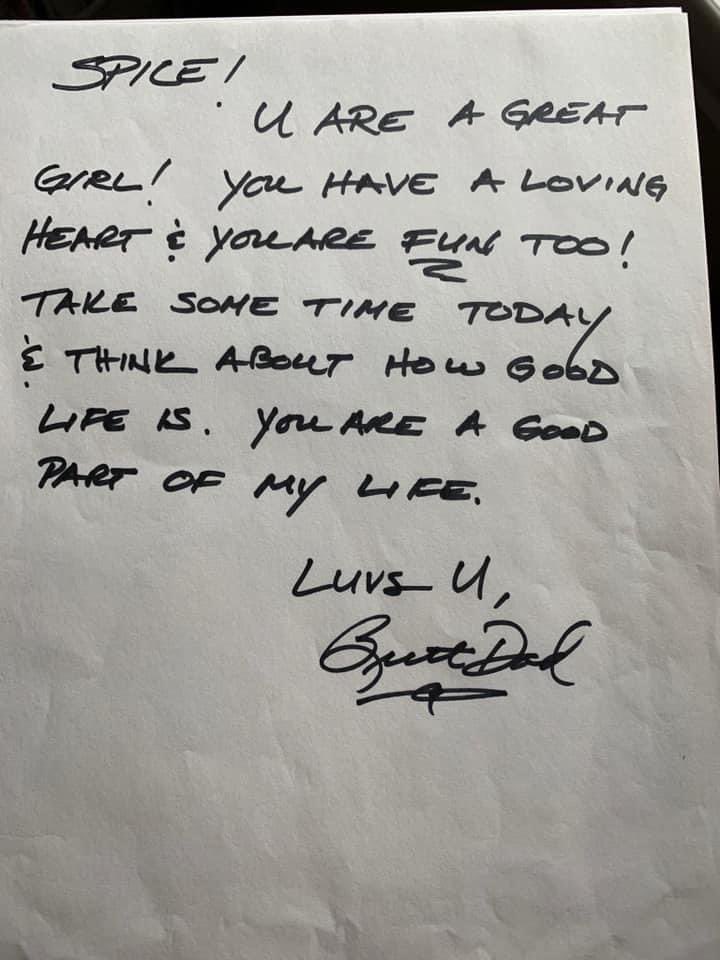 SPICE!
U ARE A GREAT
GIRL! YOU HAVE A LOVING
HEART & YOU ARE FUN TOO!
TAKE SOME TIME TODAY
& THINK ABOUT HOW GOOD
LIFE IS. YOU ARE A GOOD
PART OF MY LIFE.
LUVS U,
Dad